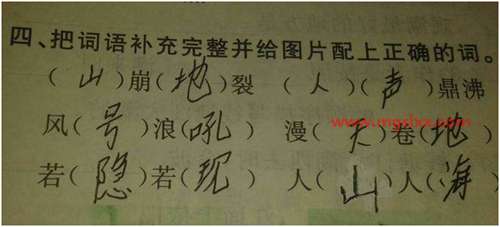 四、把词语补充完整并给图片配上正确的词。
(山)崩(地)裂 (人)(声)鼎沸
风(号)浪(吼) 漫(天)卷(地)
若(隐)若(现) 人(山)人(海)